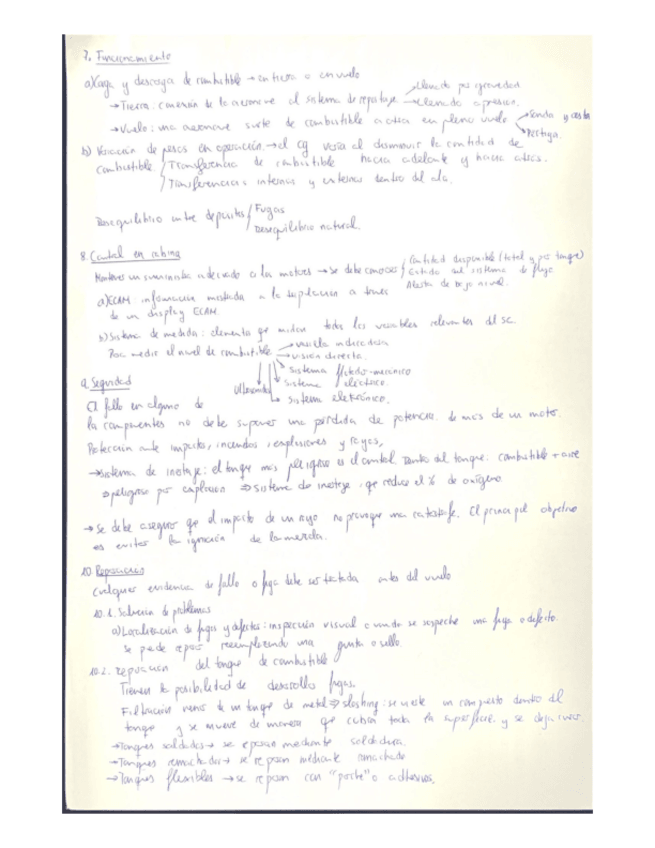 7. Funcionamiento
a) Carga y descarga de combustible → en tierra o en vuelo
→ Tierra: conexión de la aeronave al sistema de repostaje → Llenado por gravedad
→ Llenado a presión.
→ Vuelo: una aeronave surte de combustible a otra en pleno vuelo → Sonda y cesta
→ Pértiga.
b) Variación de pesos en operación. → el cg varía al disminuir la cantidad de
combustible. Transferencia de combustible hacia adelante y hacia atrás.
Transferencias internas y externas dentro del ala.
Desequilibrio entre depósitos Fugas
Desequilibrio natural.
8. Control en cabina
Mantener un suministro adecuado a los motores → se debe conocer Cantidad disponible (total y por tanque)
Estado del sistema de flujo.
Alerta de bajo nivel.
a) ECAM información mostrada a la tripulación a través
de un display ECAM.
b) Sistema de medida: elementos que miden todas las variables relevantes del SC
Para medir el nivel de combustible → varilla indicadora
→ visión directa.
sistema flotador-mecánico
Ultrasonidos sistema eléctrico.
sistema electrónico.
9. Seguridad
El fallo en alguno de
los componentes no debe suponer una pérdida de potencia de más de un motor.
Protección ante impactos, incendios, explosiones y rayos.
→ Sistema de inertaje: el tanque más peligroso es el central. Dentro del tanque: combustible + aire
⇒ peligroso por explosión ⇒ sistema de inertaje, que reduce el % de oxígeno
→ Se debe asegurar que el impacto de un rayo no provoque una catástrofe. El principal objetivo
es evitar la ignición de la mezcla.
10. Reparación
Cualquier evidencia de fallo o fuga debe ser tratada antes del vuelo
10.1. Solución de problemas
a) Localización de fugas y defectos: inspección visual cuando se sospeche una fuga o defecto.
Se puede reparar reemplazando una junta o sello.
10.2. reparación del tanque de combustible
Tienen la posibilidad de desarrollar fugas.
Filtración venas de un tanque de metal ⇒ sloshing: se vierte un compuesto dentro del
tanque y se mueve de manera que cubra toda la superficie y se deja curar.
→ Tanques soldados → se reparan mediante soldadura.
→ Tanques remachados → se reparan mediante remachado
→ Tanques flexibles → se reparan con "parche" o adhesivos.